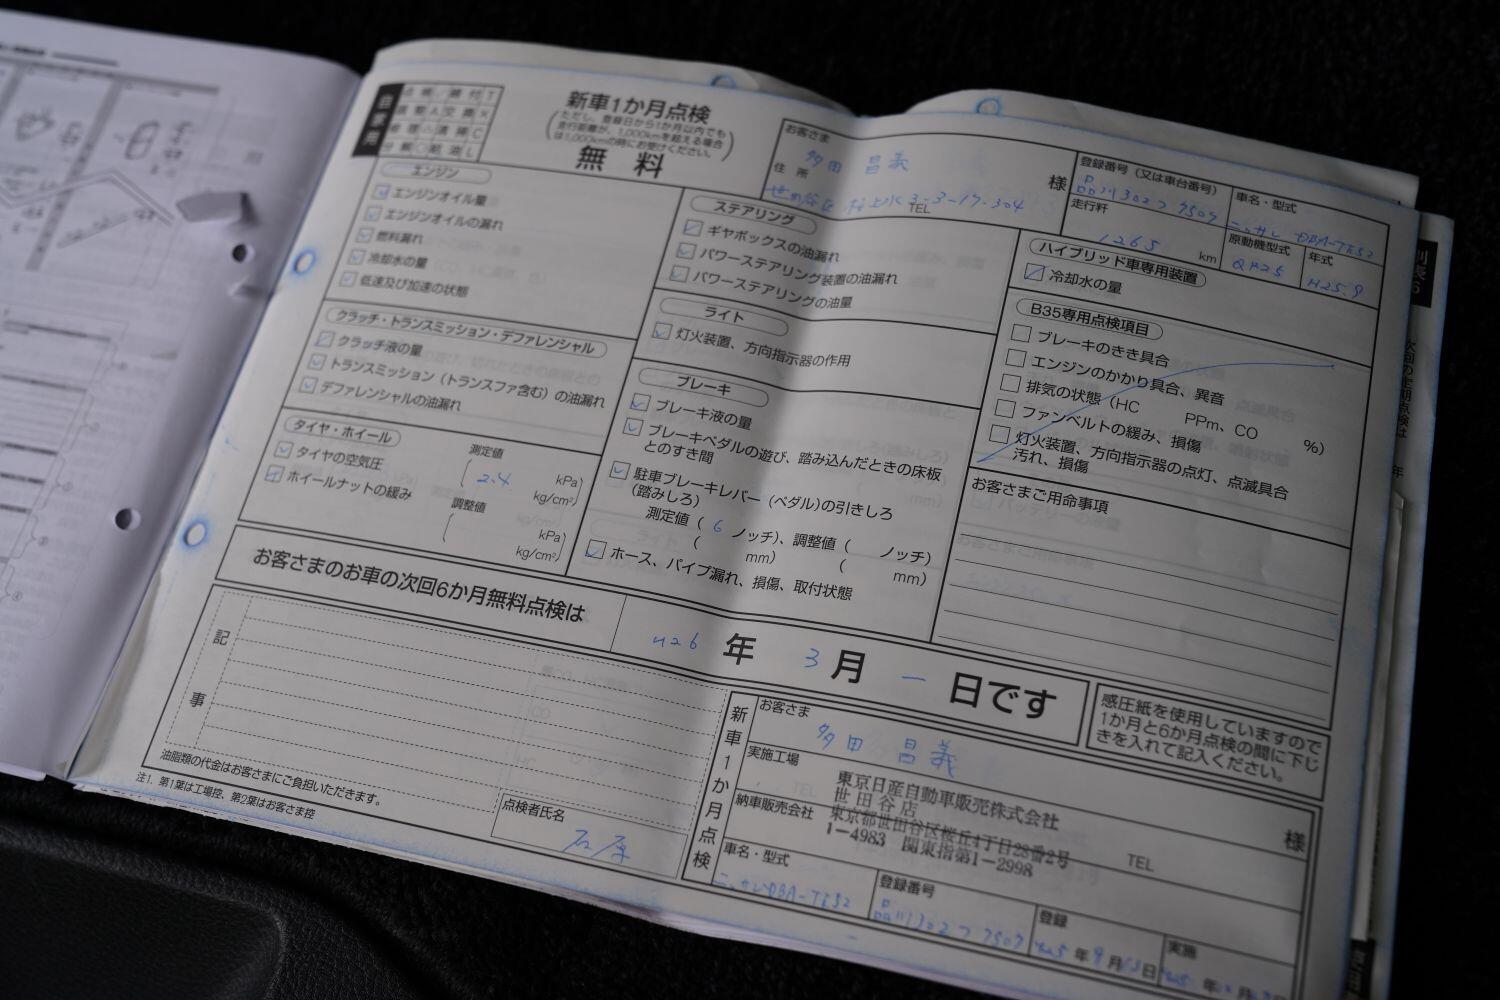 自家用
点検レ 締付T
調整A 交換×
修理△ 清掃C
分解○ 給油L
新車1か月点検
(ただし、登録日から1か月以内でも
走行距離が、1,000kmを超える場合
は1,000kmの時にお受けください。)
無 料
お客さま
多田 昌義
様
住 所
世田谷区 桜上水 3-3-17-304
TEL
登録番号(又は車台番号)
品川302つ7507
車名・型式
ニッサン DBA-TE52
走行粁
1265
km
原動機型式
QR25
年式
H25.9
エンジン
エンジンオイル量
エンジンオイルの漏れ
燃料漏れ
冷却水の量
低速及び加速の状態
クラッチ・トランスミッション・デファレンシャル
クラッチ液の量
トランスミッション(トランスファ含む)の油漏れ
デファレンシャルの油漏れ
タイヤ・ホイール
タイヤの空気圧
ホイールナットの緩み
測定値
2.4
kPa
kg/cm²
調整値
kPa
kg/cm²
ステアリング
ギヤボックスの油漏れ
パワーステアリング装置の油漏れ
パワーステアリングの油量
ライト
灯火装置、方向指示器の作用
ブレーキ
ブレーキ液の量
ブレーキペダルの遊び、踏み込んだときの床板
とのすき間
駐車ブレーキレバー(ペダル)の引きしろ
(踏みしろ)
測定値( 6 ノッチ)、調整値( ノッチ)
( mm) ( mm)
ホース、パイプ漏れ、損傷、取付状態
ハイブリッド車専用装置
冷却水の量
B35専用点検項目
ブレーキのきき具合
エンジンのかかり具合、異音
排気の状態(HC PPm、CO %)
ファンベルトの緩み、損傷
灯火装置、方向指示器の点灯、点滅具合
汚れ、損傷
お客さまご用命事項
お客さまのお車の次回6か月無料点検は
H26 年 3 月 一 日です
感圧紙を使用していますので
1か月と6か月点検の間に下じ
きを入れて記入ください。
記事
油脂類の代金はお客さまにご負担いただきます。
注1. 第1葉は工場控、第2葉はお客さま控
点検者氏名
石原
新車1か月点検
お客さま
多田 昌義
様
実施工場
納車販売会社
東京日産自動車販売株式会社
世田谷店
東京都世田谷区桜丘4丁目28番2号
1-4983 関東指第1-2998
TEL
車名・型式
ニッサン DBA-TE52
登録番号
品川302つ7507
登録
H25 年 9 月 13 日
実施
年 月